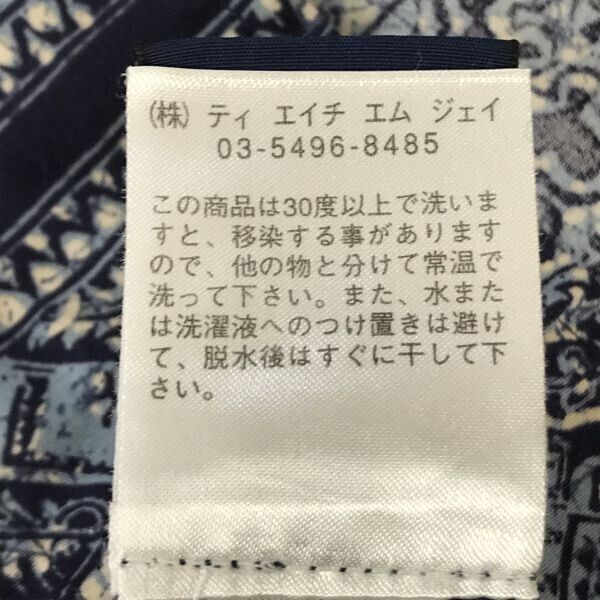 (株) ティ エイチ エム ジェイ
03-5496-8485
この商品は30度以上で洗いま
すと、移染する事があります
ので、他の物と分けて常温で
洗って下さい。また、水また
は洗濯液へのつけ置きは避け
て、脱水後はすぐに干して下
さい。